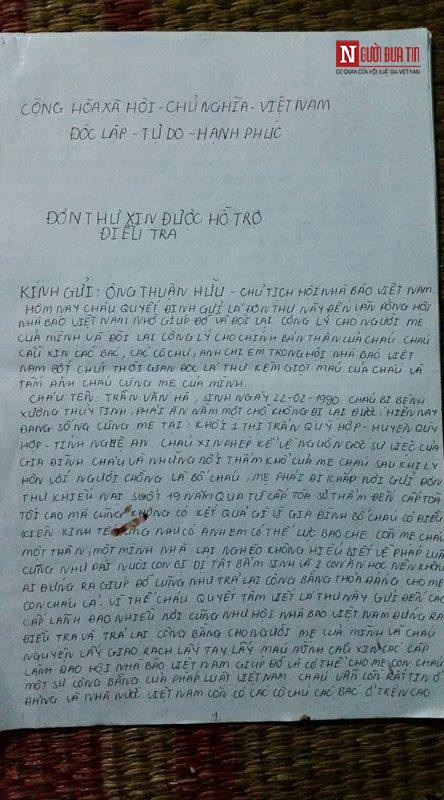 NGƯỜI ĐƯA TIN
CƠ QUAN CỦA HỘI LUẬT GIA VIỆT NAM
CỘNG HÒA XÃ HỘI - CHỦ NGHĨA - VIỆT NAM
ĐỘC LẬP - TỰ DO - HẠNH PHÚC
ĐƠN THƯ XIN ĐƯỢC HỖ TRỢ
ĐIỀU TRA
KÍNH GỬI: ÔNG THUẬN HỮU - CHỦ TỊCH HỘI NHÀ BÁO VIỆT NAM.
HÔM NAY CHÁU QUYẾT ĐỊNH GỬI LÁ ĐƠN THƯ NÀY ĐẾN VĂN PHÒNG HỘI
NHÀ BÁO VIỆT NAM NHỜ GIÚP ĐỠ VÀ ĐÒI LẠI CÔNG LÝ CHO NGƯỜI MẸ
CỦA MÌNH VÀ ĐÒI LẠI CÔNG LÝ CHO CHÍNH BẢN THÂN CỦA CHÁU. CHÁU
CẦU XIN CÁC BÁC, CÁC CÔ CHÚ, ANH CHỊ EM TRONG HỘI NHÀ BÁO VIỆT
NAM BỚT CHÚT THỜI GIAN ĐỌC LÁ THƯ KÈM GIỌT MÁU CỦA CHÁU VÀ
TẤM ẢNH CHÁU CÙNG MẸ CỦA MÌNH.
CHÁU TÊN: TRẦN VĂN HÀ, SINH NGÀY 22-02-1990. CHÁU BỊ BỆNH
XƯƠNG THỦY TINH, PHẢI ĂN NẰM MỘT CHỖ KHÔNG ĐI LẠI ĐƯỢC, HIỆN NAY
ĐANG SỐNG CÙNG MẸ TẠI: KHỐI 1 THỊ TRẤN QUỲ HỢP - HUYỆN QUỲ
HỢP - TỈNH NGHỆ AN. CHÁU XIN PHÉP KỂ VỀ NGUỒN GỐC SỰ VIỆC CỦA
GIA ĐÌNH CHÁU VÀ NHỮNG NỖI THẬM KHỔ CỦA MẸ CHÁU SAU KHI LY
HÔN VỚI NGƯỜI CHỒNG LÀ BỐ CHÁU, MẸ PHẢI ĐI KHẮP NƠI GỬI ĐƠN
THƯ KHIẾU NẠI SUỐT 19 NĂM QUA TỪ CẤP TÒA SƠ THẨM ĐẾN CẤP TÒA
TỐI CAO MÀ CŨNG KHÔNG CÓ KẾT QUẢ GÌ VÌ GIA ĐÌNH BỐ CHÁU CÓ ĐIỀU
KIỆN KINH TẾ CŨNG NHƯ CÓ ANH EM CÓ THẾ LỰC BAO CHE CÒN MẸ CHÁU
MỘT THÂN, MỘT MÌNH NHÀ LẠI NGHÈO KHÔNG HIỂU BIẾT VỀ PHÁP LUẬT
CŨNG NHƯ PHẢI NUÔI CON BỊ DỊ TẬT BẨM SINH VÀ 2 CON ĂN HỌC NÊN KHÔNG
AI ĐỨNG RA GIÚP ĐỠ CŨNG NHƯ TRẢ LẠI CÔNG BẰNG THỎA ĐÁNG CHO MẸ
CON CHÁU CẢ. VÌ THẾ CHÁU QUYẾT TÂM VIẾT LÁ THƯ NÀY GỬI ĐẾN CÁC
CẤP LÃNH ĐẠO NHIỀU NƠI CŨNG NHƯ HỘI NHÀ BÁO VIỆT NAM ĐỨNG RA
ĐIỀU TRA VÀ TRẢ LẠI CÔNG BẰNG CHO NGƯỜI MẸ CỦA MÌNH VÀ CHÁU
NGUYỆN LẤY GIAO RẠCH LẤY TAY LẤY MÁU MÌNH CẦU XIN CÁC CẤP
LÃNH ĐẠO HỘI NHÀ BÁO VIỆT NAM GIÚP ĐỠ VÀ CÓ THỂ CHO MẸ CON CHÁU
MỘT SỰ CÔNG BẰNG CỦA PHÁP LUẬT VIỆT NAM. CHÁU VẪN CÒN RẤT TIN Ở
ĐẢNG VÀ NHÀ NƯỚC VIỆT NAM CÒN CÓ CÁC CÔ CHÚ CÁC BÁC Ở TRÊN CAO
1